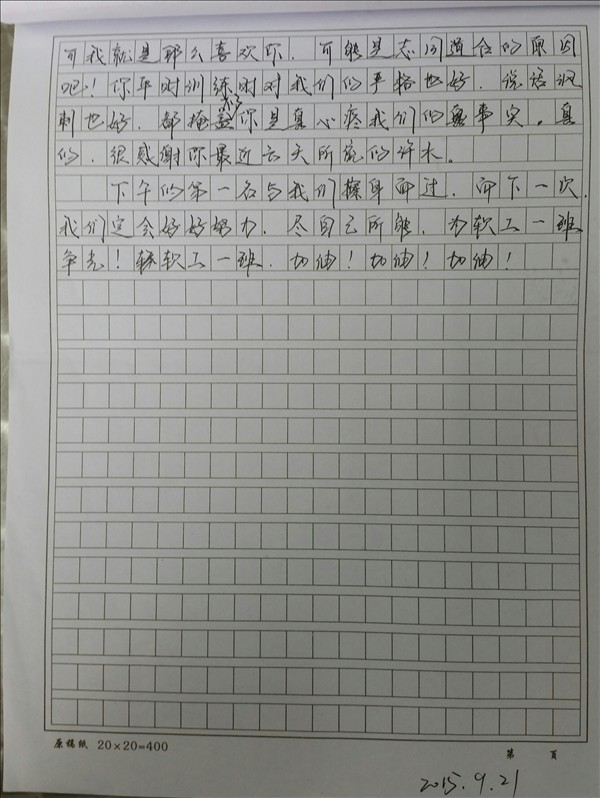 可我就是那么喜欢你.可能是志同道合的原因
吧!你平时训练时对我们的严格也好.说话讽
刺也好.都掩盖不了你是真心疼我们的事实。真
的.很感谢你最近云天所能的许木。
下午的第一名与我们擦身而过.而下一次.
我们定会好好努力.尽自己所能.为软工一班
争光!软工一班.加油!加油!加油!
原稿纸 20×20=400
第 页
2015.9.21